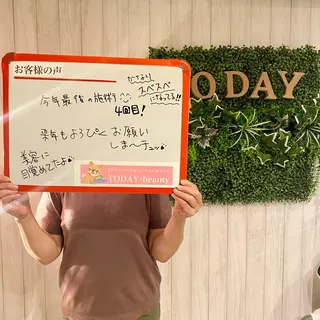 お客様の声
かなり
スベスベ
になってる!!
今年最後の施術
4回目!
来年もようぴくお願い
しま〜チュッ
美容に
目覚めてたよ
TODAY+beauty
TODAY